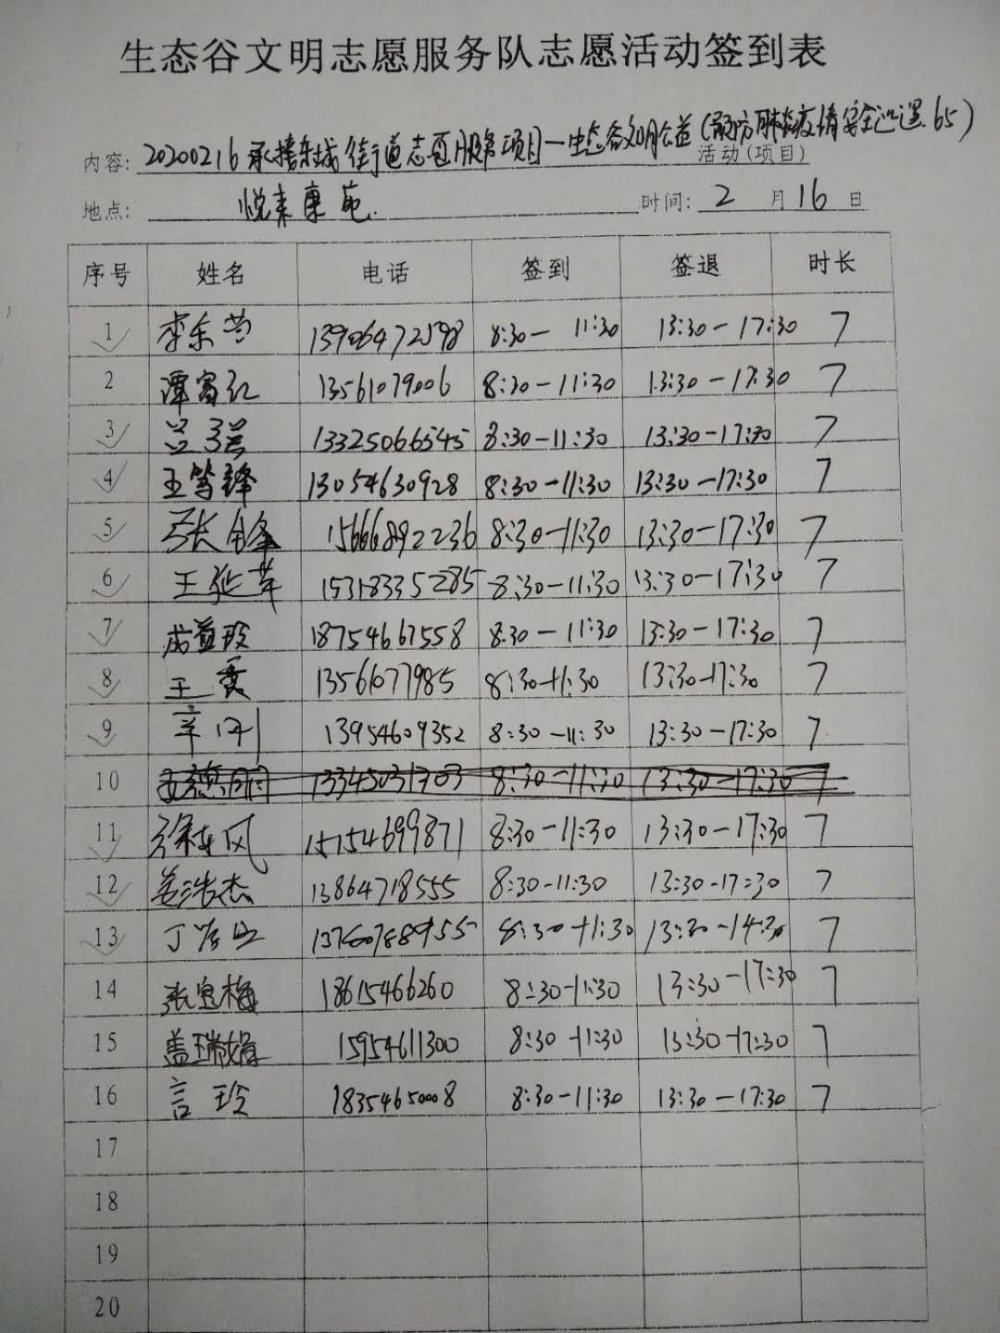 生态谷文明志愿服务队志愿活动签到表
内容: 20200216承接东城街道志愿服务项目—生态谷文明公益(预防肺炎疫情安全巡逻.65)
活动(项目)
地点: 悦来康苑. 时间: 2 月 16 日
序号 姓名 电话 签到 签退 时长
1 李东芳 13906472598 8:30— 11:30 13:30-17:30 7
2 谭富红 13561079006 8:30-11:30 13:30-17:30 7
3 吕强 13325066545 8:30-11:30 13:30-17:30 7
4 王笃锋 13054630928 8:30-11:30 13:30-17:30 7
5 张 15666892236 8:30-11:30 13:30-17:30 7
6 王延苹 15318335285 8:30-11:30 13:30-17:30 7
7 成益玲 18754667558 8:30-11:30 13:30-17:30 7
8 王 13561077985 8:30-11:30 13:30-17:30 7
9 辛 13954609352 8:30-11:30 13:30-17:30 7
10 13345031303 8:30-11:30 13:30-17:30 7
11 徐东风 15154699871 8:30-11:30 13:30-17:30 7
12 姜浩杰 13864718555 8:30-11:30 13:30-17:30 7
13 丁 8:30-11:30 13:30-14:30 7
14 张宝梅 18615466260 8:30-11:30 13:30-17:30 7
15 盖瑞娟 15954611300 8:30-11:30 13:30-17:30 7
16 言玲 18354650008 8:30-11:30 13:30-17:30 7
17
18
19
20